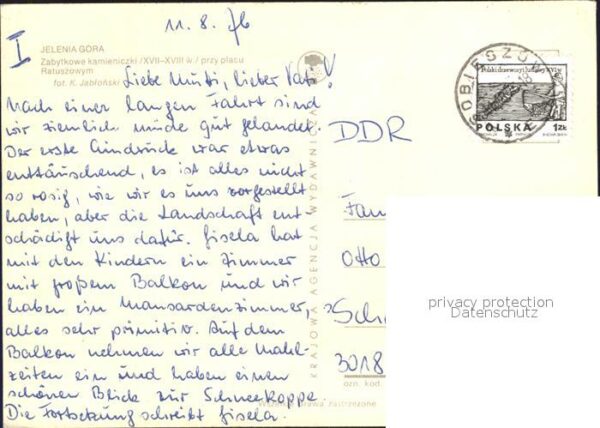 11. 8. 76
I
JELENIA GÓRA
Zabytkowe kamieniczki /XVII–XVIII w./ przy placu
Ratuszowym
fot. K. Jabłoński
Liebe Mutti, lieber Vati!
Nach einer langen Fahrt sind
wir ziemlich müde gut gelandet.
Der erste Eindruck war etwas
enttäuschend, es ist alles nicht
so rosig, wie wir es uns vorgestellt
haben, aber die Landschaft ent-
schädigt uns dafür. Gisela hat
mit den Kindern ein Zimmer
mit großem Balkon und wir
haben ein Mansardenzimmer,
alles sehr primitiv. Auf dem
Balkon nehmen wir alle Mahl-
zeiten ein und haben einen
schönen Blick zur Schneekoppe.
Die Fortsetzung schreibt Gisela.
KRAJOWA AGENCJA WYDAWNICZA
zastrzeżone
SOBIESZÓW
POLSKA
1 ZŁ
DDR
Fam
Otto
Sch
3018
ozn. kod
privacy protection
Datenschutz